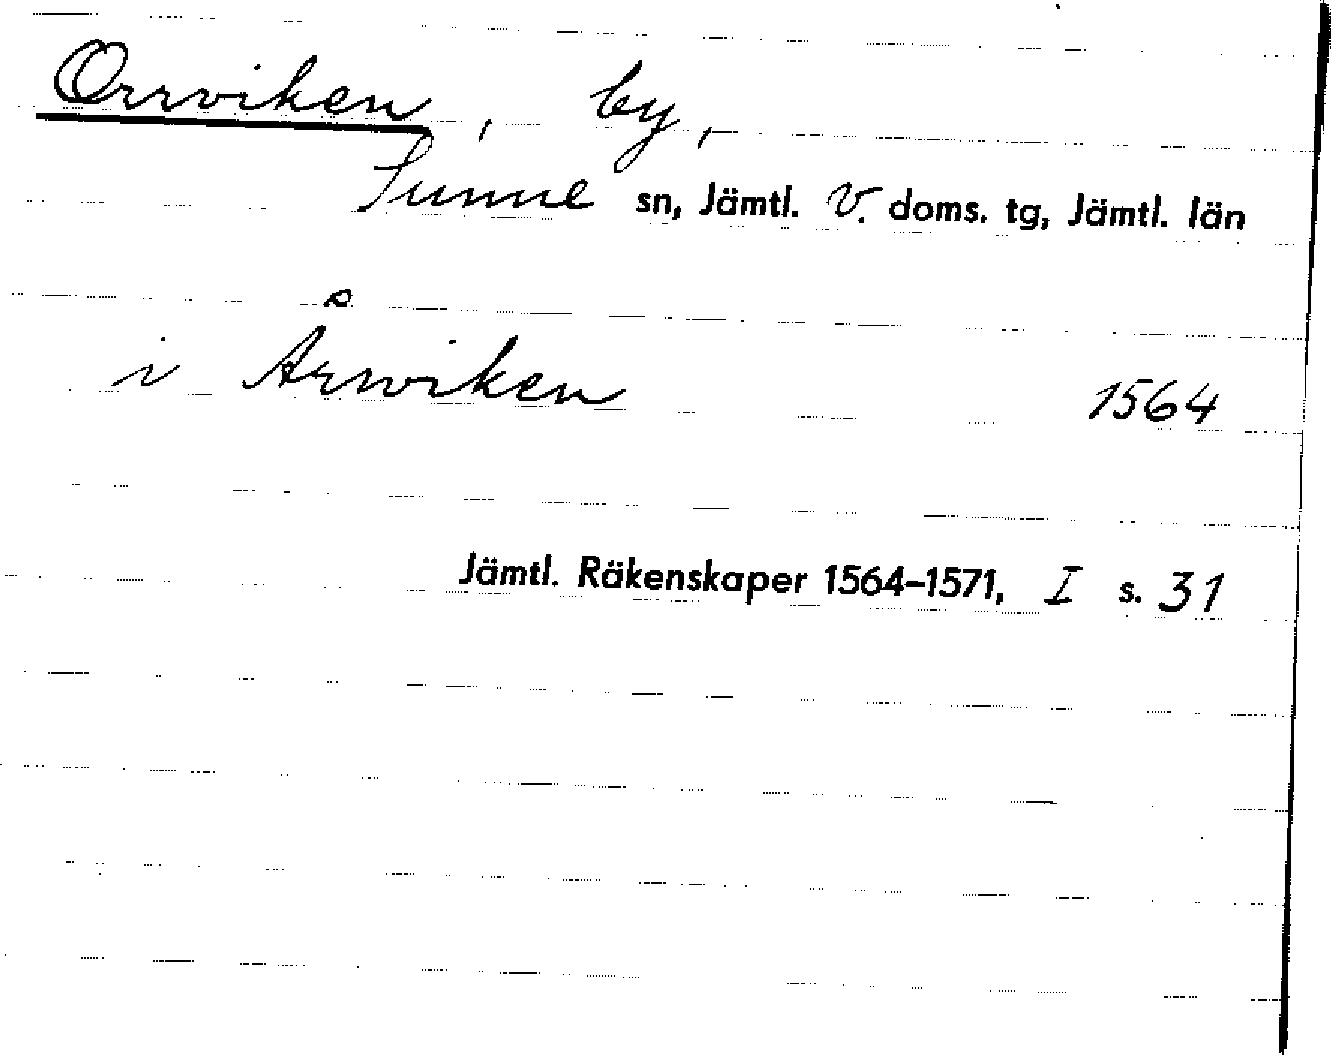 Orrviken, by,
Sunne sn, Jämtl. V. doms. tg, Jämtl. län
i Årwiken 1564
Jämtl. Räkenskaper 1564-1571, I s. 31